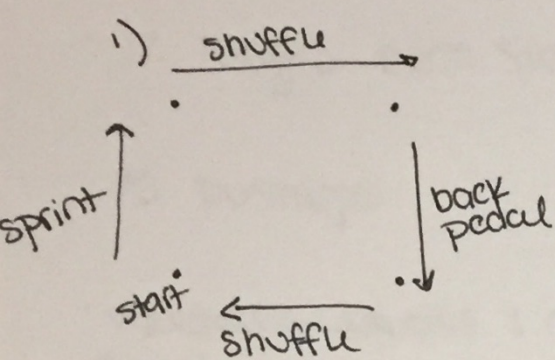 1) shuffle
sprint
back
pedal
start
shuffle